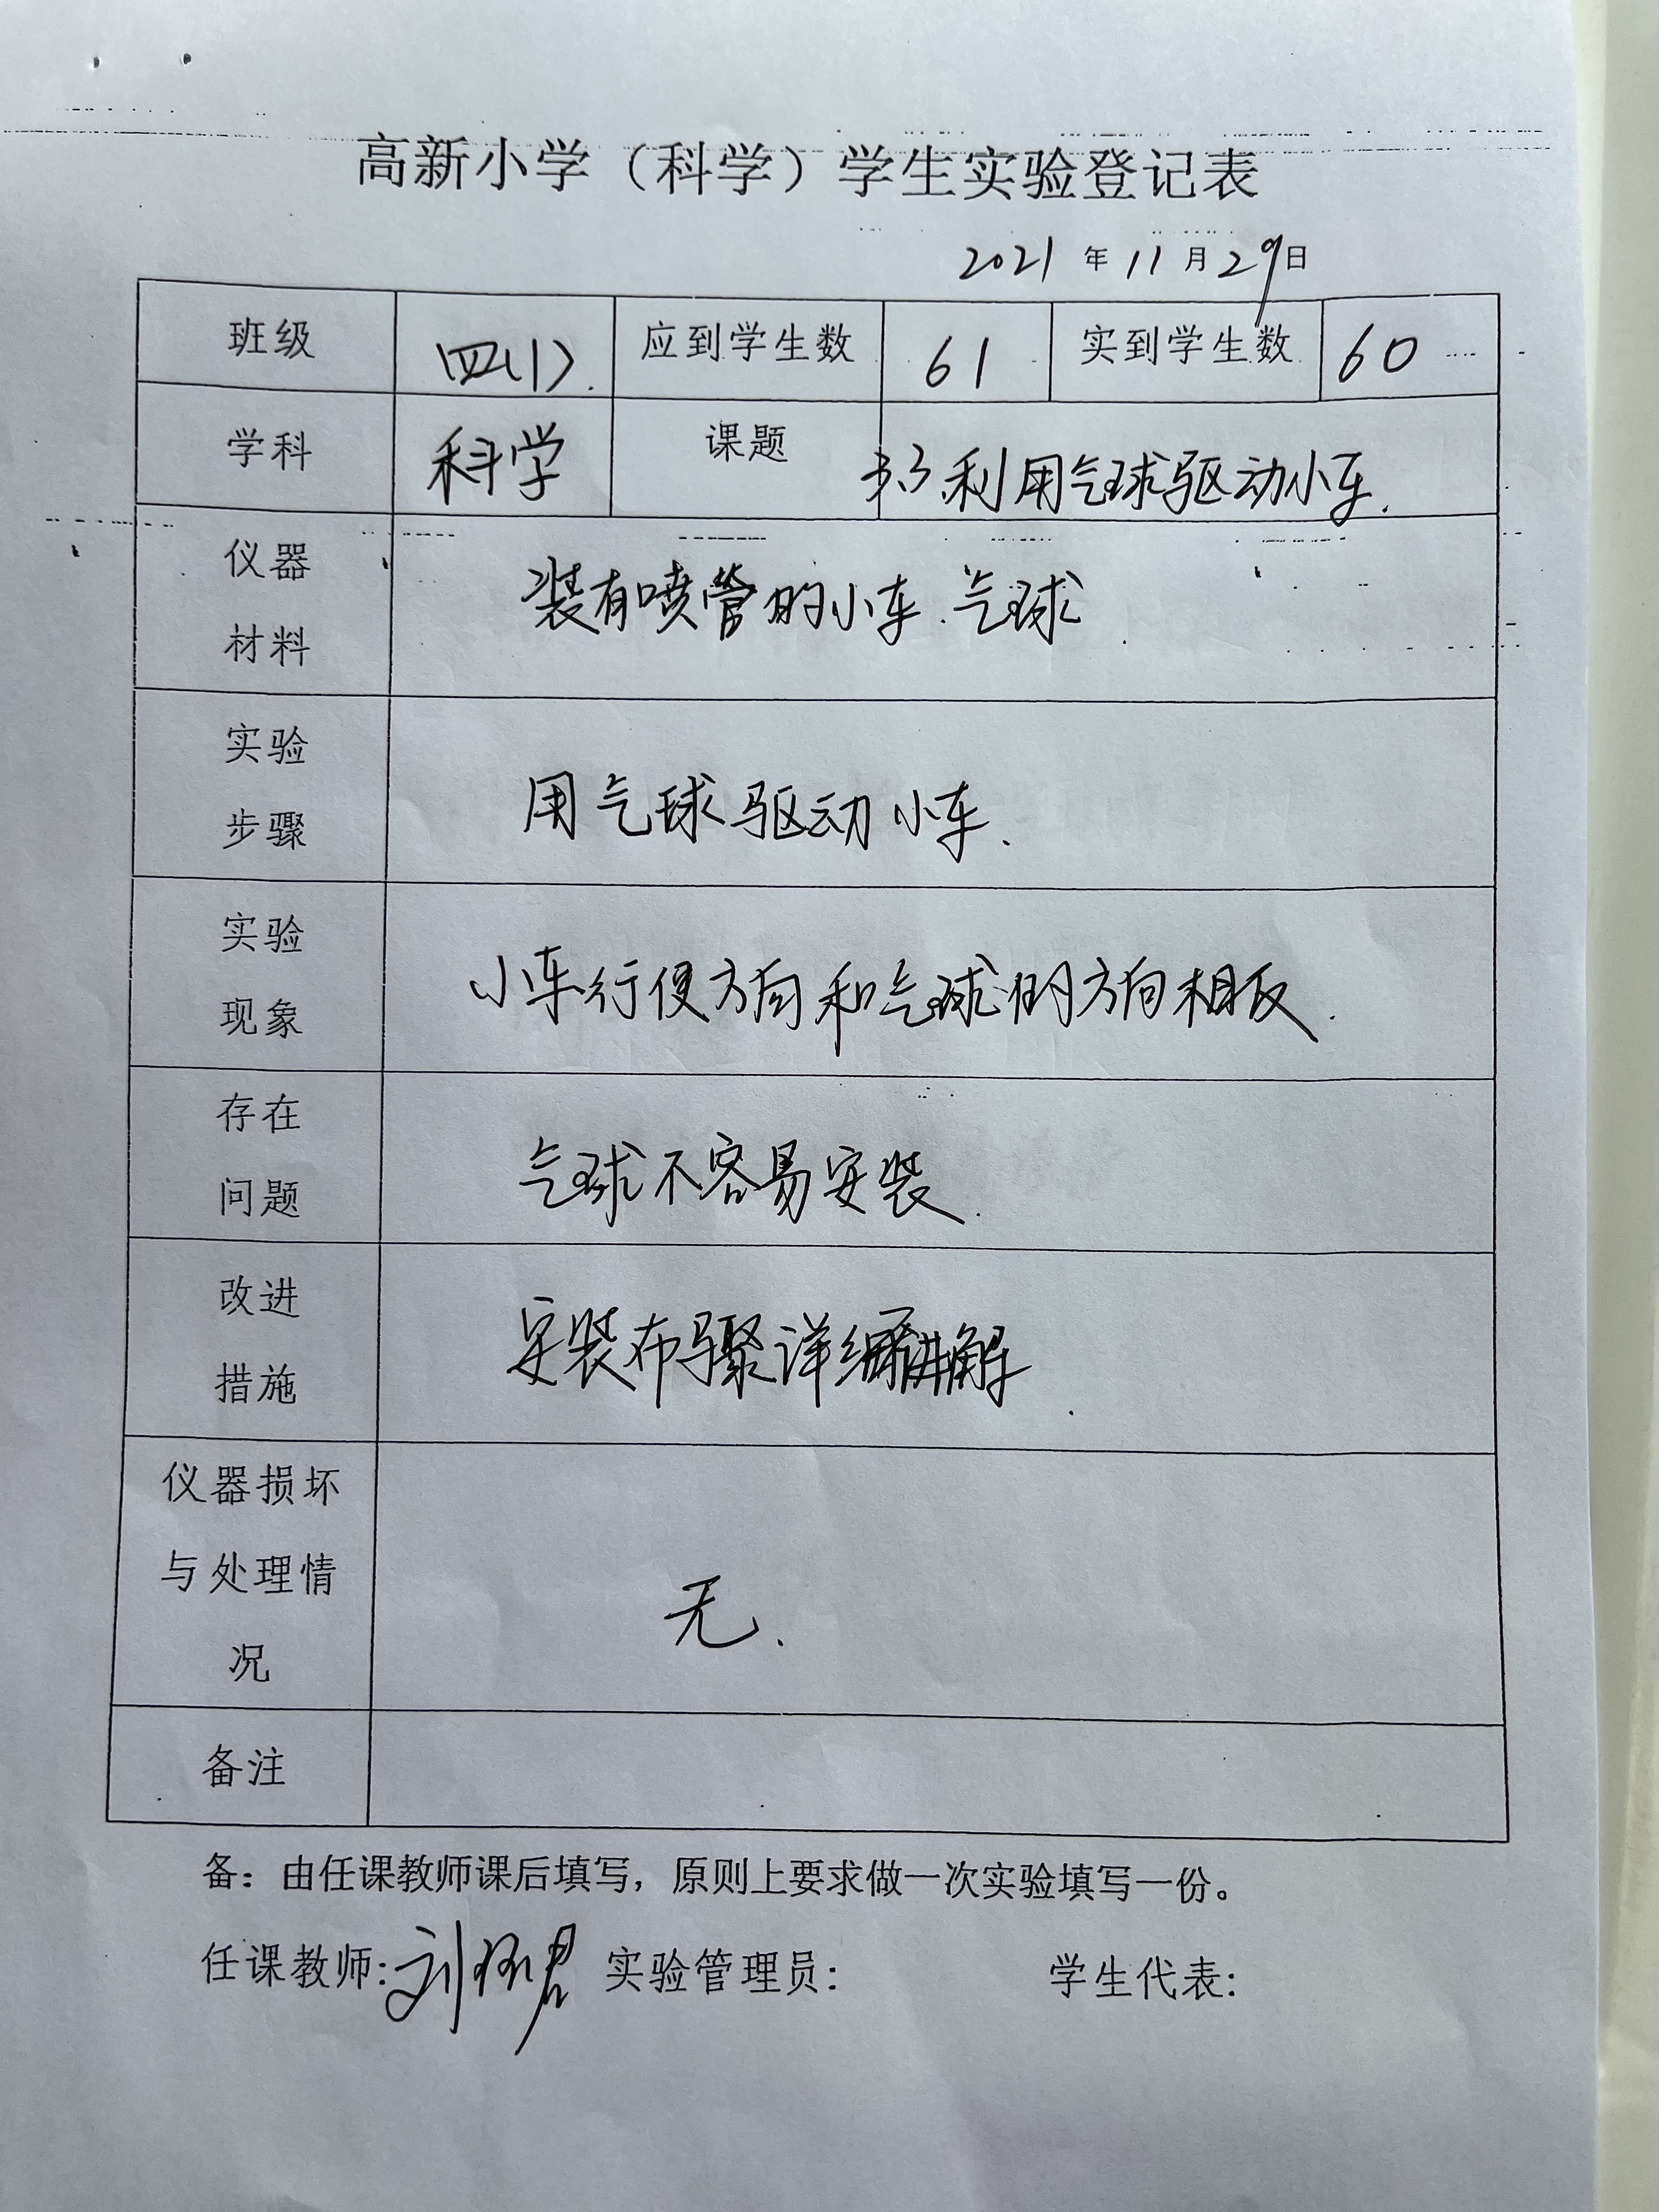 高新小学（科学）学生实验登记表
2021年11月29日
班级 四(1). 应到学生数 61 实到学生数 60
学科 科学 课题 3.3.利用气球驱动小车.
仪器
材料
装有喷管的小车.气球
实验
步骤
用气球驱动小车.
实验
现象
小车行使方向和气球的方向相反.
存在
问题
气球不容易安装.
改进
措施
安装布骤详细讲解.
仪器损坏
与处理情
况
无.
备注
备：由任课教师课后填写，原则上要求做一次实验填写一份。
任课教师:刘 君 实验管理员: 学生代表: